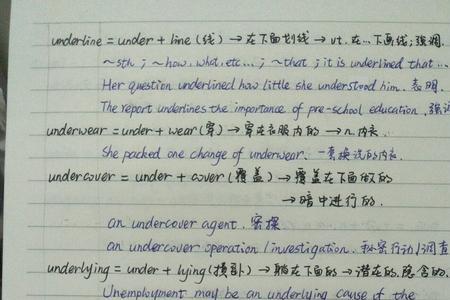 underline = under + line (线) → 在下面划线 → vt. 在…下画线; 强调.
~sth ; ~how, what, etc... ; ~that ; it is underlined that ...
Her question underlined how little she understood him. 表明.
The report underlines the importance of pre-school education. 强调
underwear = under + wear (穿) → 穿在衣服内的 → n. 内衣.
She packed one change of underwear. 一套换洗的内衣.
undercover = under + cover (覆盖) → 覆盖在下面做的
→ 暗中进行的.
an undercover agent. 密探
an undercover operation / investigation. 秘密行动/调查
underlying = under + lying → 躺在下面的 → 潜在的, 隐含的.
Unemployment may be an underlying cause of the